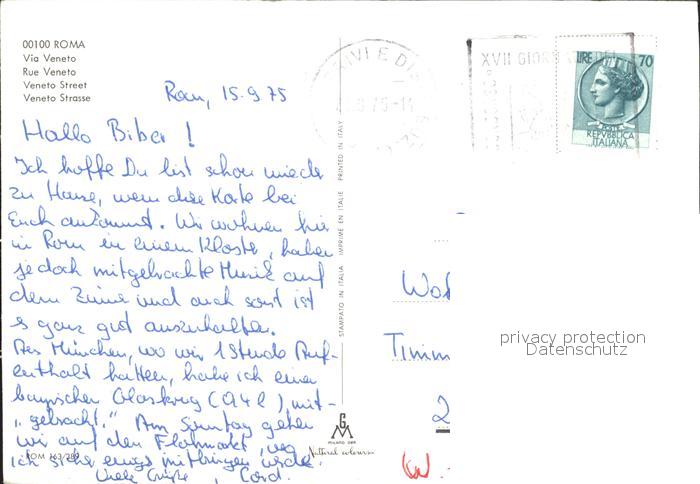 00100 ROMA
Via Veneto
Rue Veneto
Veneto Street
Veneto Strasse
Rom, 15.9.75
Hallo Biber !
Ich hoffe Du bist schon wieder
zu Hause, wenn diese Karte bei
Euch ankommt. Wir wohnen hier
in Rom in einem Kloster, haben
jedoch mitgebrachte Musik auf
dem Zimmer und auch sonst ist
es ganz gut auszuhalten.
Aus München, wo wir 1 Stunde Auf-
enthalt hatten, habe ich einen
bayrischen Glaskrug (a 4 l) mit-
„gebracht." Am Sonntag gehen
wir auf den Flohmarkt, wo
ich sicher einiges mitbringen werde.
Viele Grüße, Cord.
ROM 163/289
STAMPATO IN ITALIA IMPRIME EN ITALIE PRINTED IN ITALY
GM
MILANO
Natural colour
VIVI E
XVII GIOR
LIRE 70
REPVBBLICA
ITALIANA
Timm
2
W.
privacy protection
Datenschutz